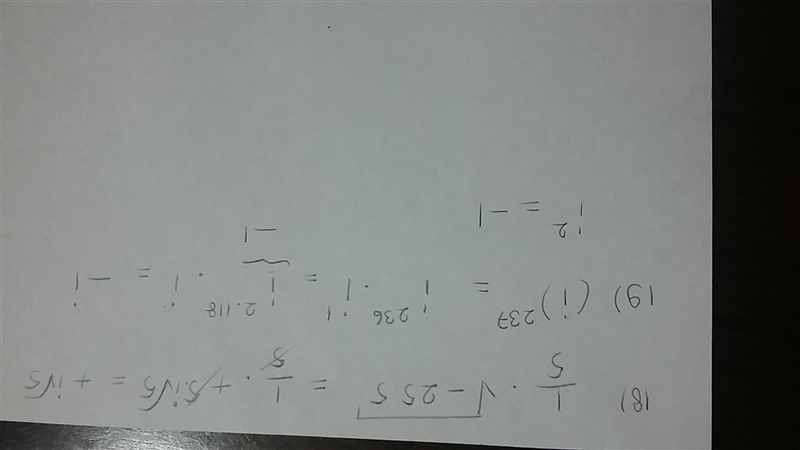 18) 1/5 · √-25.5 = 1/5 · +5i√5 = + i√5
19) (i)^237 = i^236 · i^1 = i^2·118 · i = -i
-1
i^2 = -1